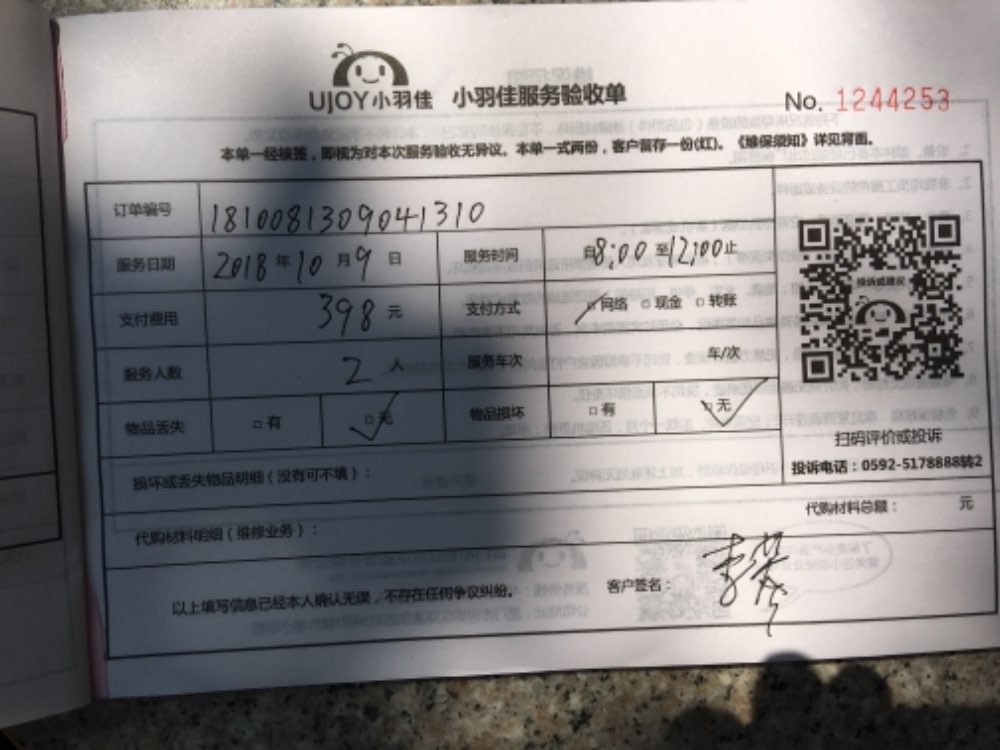 UJOY小羽佳 小羽佳服务验收单
No. 1244253
本单一经核签，即视为对本次服务验收无异议。本单一式两份，客户留存一份(红)。《维保须知》详见背面。
订单编号 1810081309041310
服务日期 2018年10月9日 服务时间 自8:00至12:00止
支付费用 398元 支付方式 □网络 □现金 □转账
服务人数 2人 服务车次 车/次
物品丢失 □有 □无 物品损坏 □有 □无
投诉或建议
扫码评价或投诉
投诉电话：0592-5178888转2
损坏或丢失物品明细（没有可不填）：
代购材料明细（维修业务）： 代购材料总额： 元
以上填写信息已经本人确认无误，不存在任何争议纠纷。 客户签名：